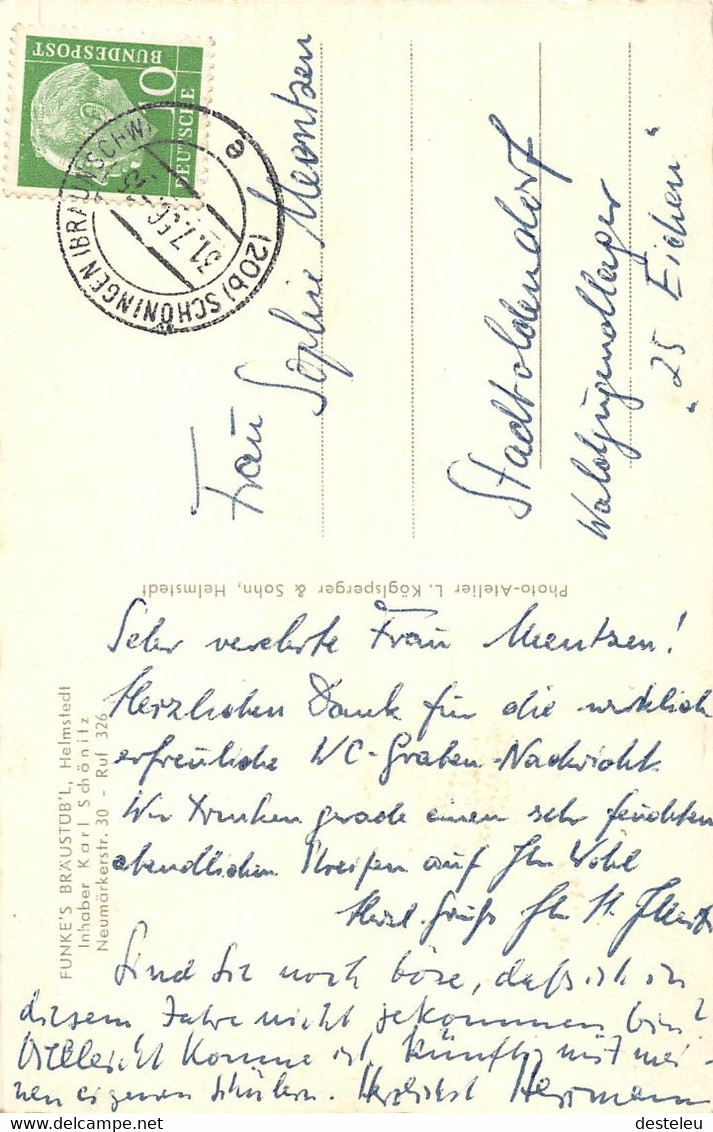 DEUTSCHE
BUNDESPOST
(20b) SCHÖNINGEN (BRAUNSCHW)
31.7.56
e
Frau
Sophie Mentzen
Stadtoldendorf
Waldjugendlager
"25 Eichen"
Photo-Atelier L. Köglsperger & Sohn, Helmstedt
FUNKE'S BRÄUSTÜB'L, Helmstedt
Inhaber Karl Schönitz
Neumärkerstr. 30 - Ruf 326
Sehr verehrte Frau Mentzen!
Herzlichen Dank für die wirklich
erfreuliche WC-Graben-Nachricht.
Wir trinken gerade einen sehr feuchten
abendlichen Streifen auf Ihr Wohl
Herzl. Grüße Ihr H.
Sind Sie noch böse, daß ich in
diesem Jahre nicht gekommen bin?
Vielleicht komme ich künftig mit mei-
nen eigenen Schülern. Herzlichst Herrmann
desteleu